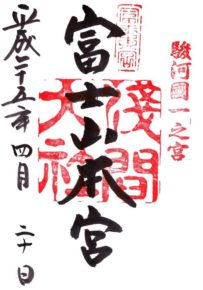 駿河國一之宮
富士山本宮
淺間大社
平成二十五年四月
二十日